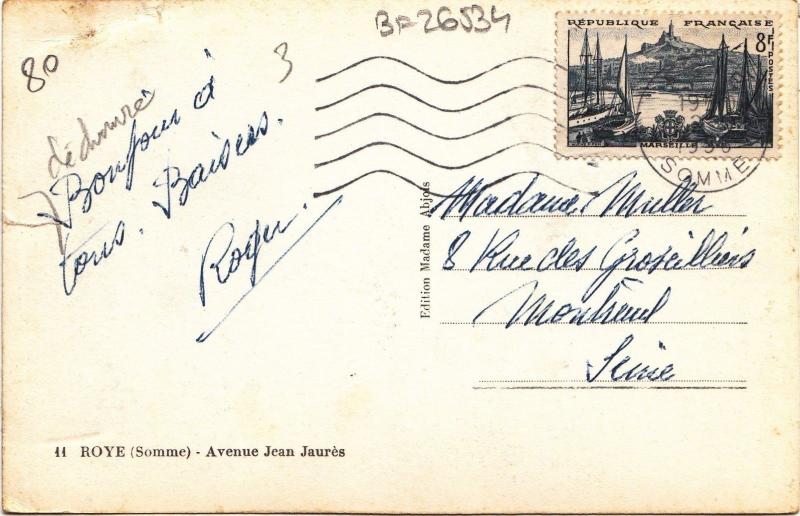 BF 26534
80
3
déchirure
Bonjour à
tous. Baisers.
Roger.
RÉPUBLIQUE FRANÇAISE
8F
POSTES
MARSEILLE
SOMME
Edition Madame Abjois
Madame Muller
8 Rue des Groseilliers
Montreuil
Seine
11 ROYE (Somme) - Avenue Jean Jaurès